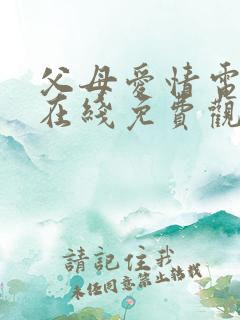 父母爱情電
在綫免費觀
請記住我
未经同意禁止转载